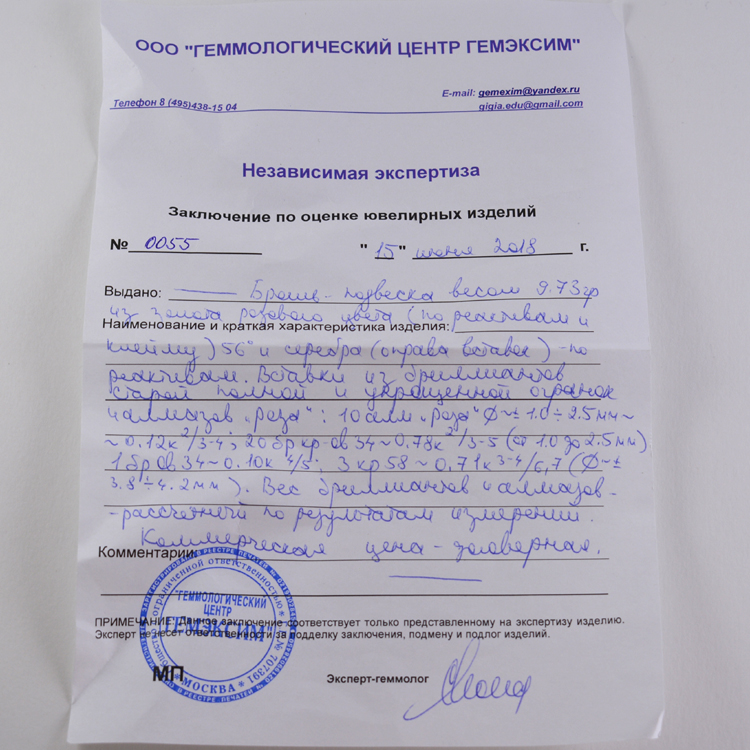 ООО "ГЕММОЛОГИЧЕСКИЙ ЦЕНТР ГЕМЭКСИМ"
E-mail: gemexim@yandex.ru
Телефон 8 (495)438-15 04
gigia.edu@gmail.com
Независимая экспертиза
Заключение по оценке ювелирных изделий
№ 0055 "15" июня 2018 г.
Выдано: Брошь-подвеска весом 9.73гр
из золота розового цвета (по реактивам и
Наименование и краткая характеристика изделия:
клейму) 56° и серебра (оправа вставок) - по
реактивам. Вставки из бриллиантов
старой полной и упрощенной огранок
и алмазов „роза": 10 алм „роза" Ф ~ ± 1.0 ÷ 2.5мм ~
~ 0.12к 2/3-4; 20 бр кр-ов 34 ~ 0.78к 2/3-5 (от 1.0 до 2.5мм)
1 бр ов 34 ~ 0.10к 4/5; 3 кр 58 ~ 0,71к 3-4/6,7 (Ф ~ ±
3.8 ÷ 4.2мм). Вес бриллиантов и алмазов -
- рассчетный по результатам измерений.
Коммерческая цена - договорная.
Комментарии:
"ГЕММОЛОГИЧЕСКИЙ
ЦЕНТР
ГЕМЭКСИМ"
ПРИМЕЧАНИЕ: Данное заключение соответствует только представленному на экспертизу изделию.
Эксперт не несет ответственности за подделку заключения, подмену и подлог изделий.
МП
* МОСКВА *
Эксперт-геммолог